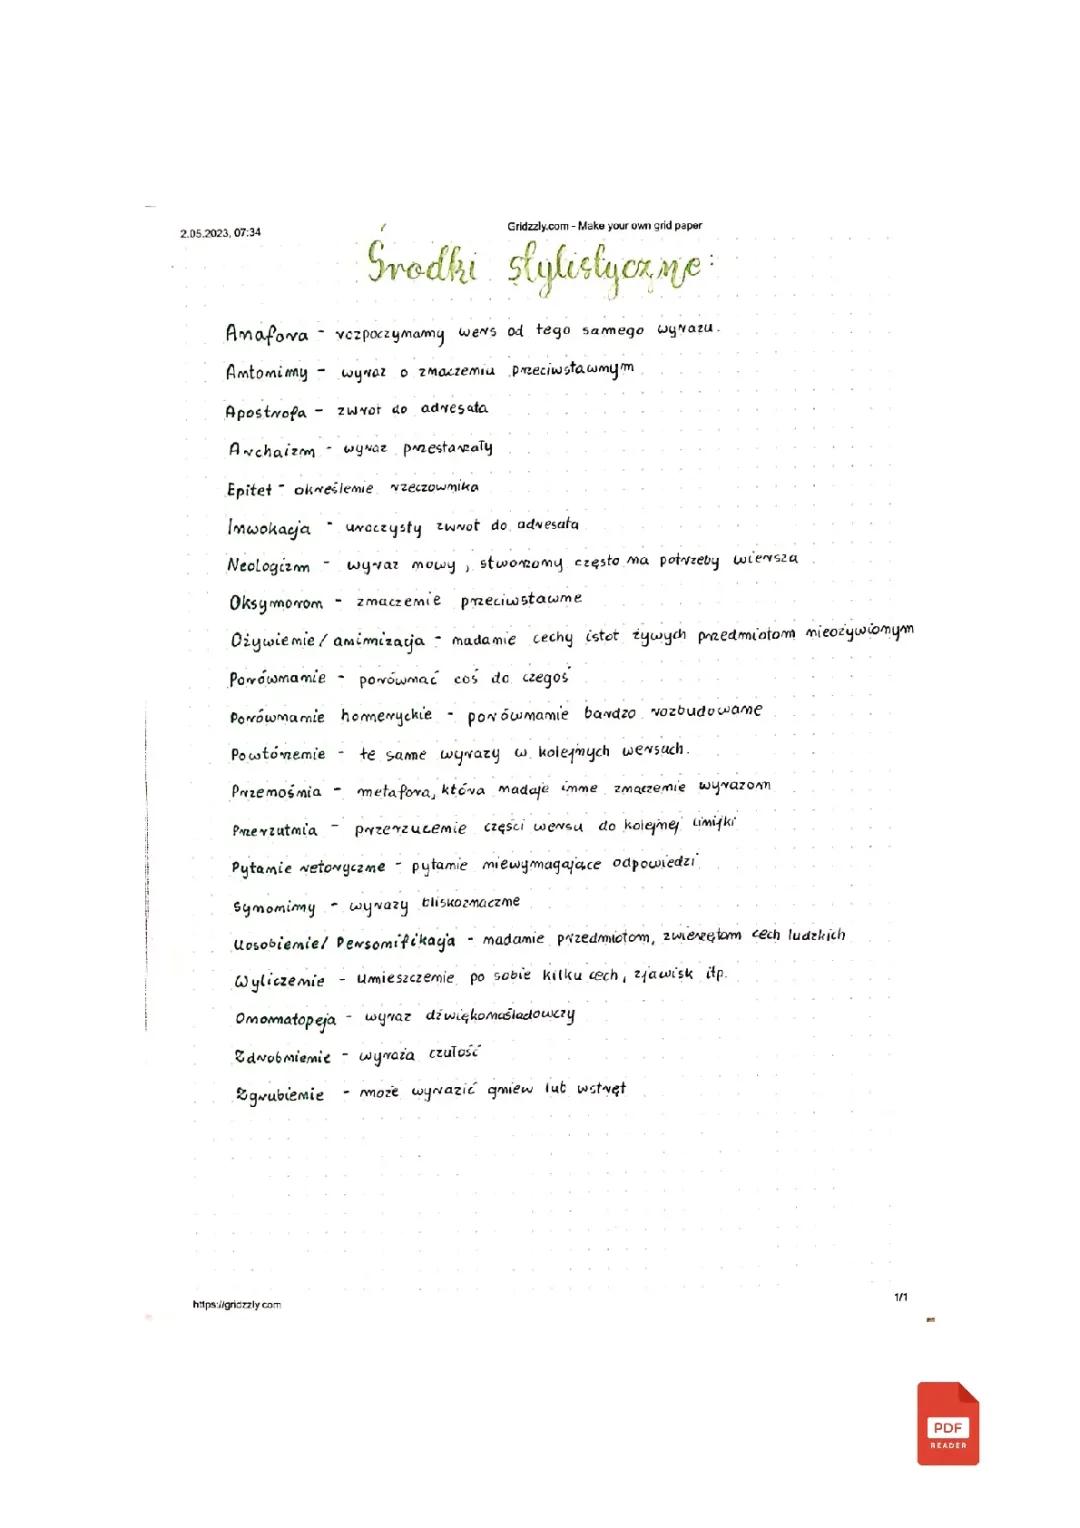 2.05.2023, 07:34
Gridzzly.com - Make your own grid paper
Środki stylistyczne:
Anafora - rozpoczynamy wers od tego samego wyrazu.
Antonimy - wyraz o znaczeniu przeciwstawnym
Apostrofa - zwrot do adresata
Archaizm - wyraz przestarzały
Epitet - określenie rzeczownika
Inwokacja - uroczysty zwrot do adresata
Neologizm - wyraz nowy, stworzony często na potrzeby wiersza
Oksymoron - znaczenie przeciwstawne
Ożywienie/ animizacja - nadanie cechy istot żywych przedmiotom nieożywionym
Porównanie - porównać coś do czegoś
Porównanie homeryckie - porównanie bardzo rozbudowane
Powtórzenie - te same wyrazy w kolejnych wersach.
Przenośnia - metafora, która nadaje inne znaczenie wyrazom
Przerzutnia - przerzucenie części wersu do kolejnej linijki
Pytanie retoryczne - pytanie niewymagające odpowiedzi
Synonimy - wyrazy bliskoznaczne
Uosobienie/ Personifikacja - nadanie przedmiotom, zwierzętom cech ludzkich
Wyliczenie - umieszczenie po sobie kilku cech, zjawisk itp.
Onomatopeja - wyraz dźwiękonaśladowczy
Zdrobnienie - wyraża czułość
Zgrubienie - może wyrazić gniew lub wstręt
https://gridzzly.com
1/1
PDF
READER